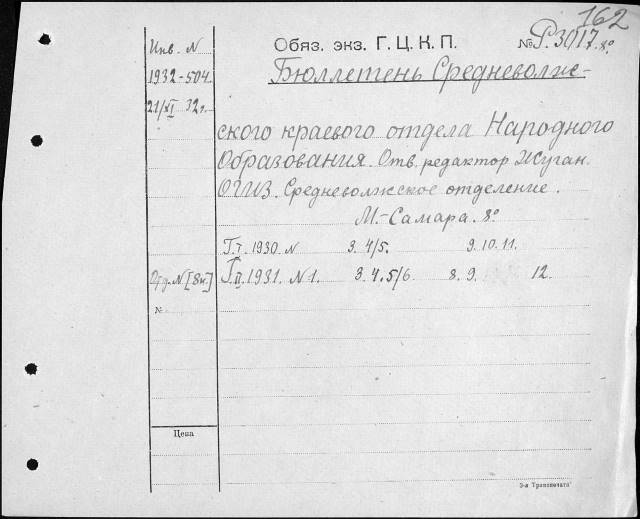 162
Инв. N
1932-504.
21/XI 32г.
Обяз. экз. Г. Ц. К. П.
№ P.3017. 8º
Бюллетень Средневолж-
ского краевого отдела Народного
Образования. Отв. редактор Жуган.
ОГИЗ. Средневолжское отделение.
М.-Самара. 8º
Г.I. 1930. N 3. 4/5. 9. 10. 11.
Отд. N [8н.]
Г.II. 1931. N 1. 3. 4. 5/6. 8. 9. 12.
№
Цена
3-я Транспечать